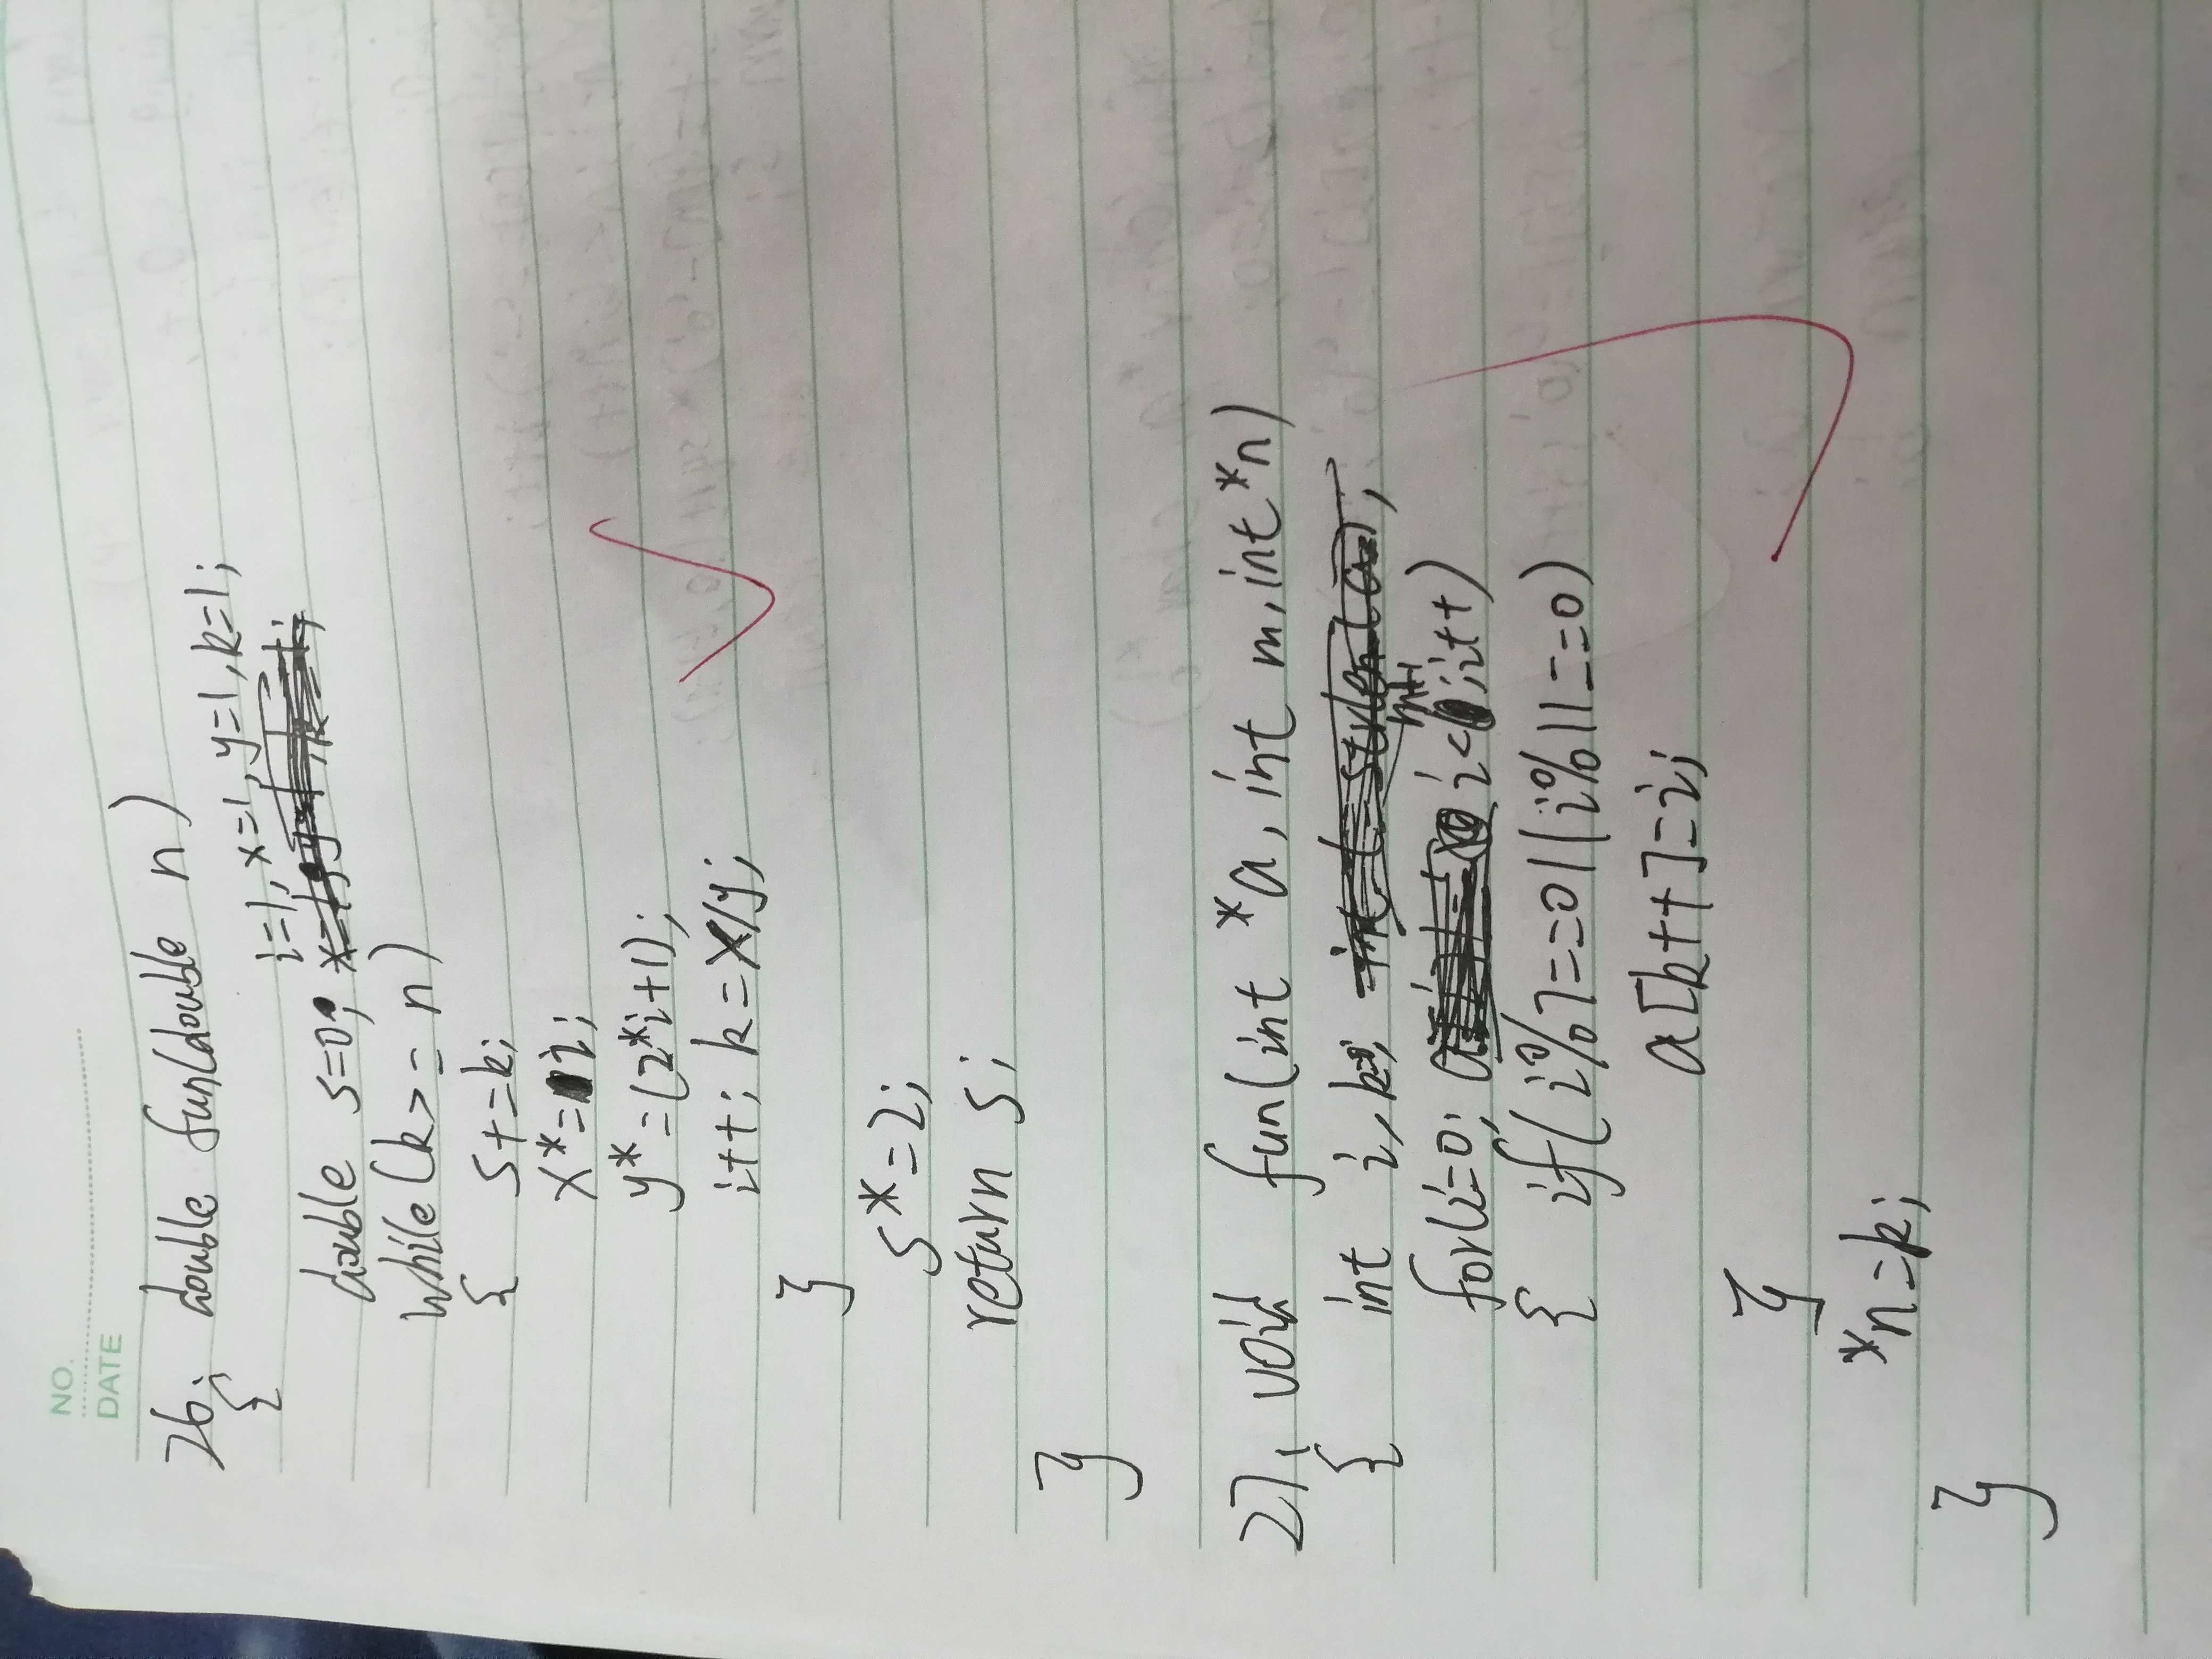 NO.
DATE
26. double fun(double n)
{
i=1, x=1, y=1, k=1;
double s=0;
while(k>=n)
{ s+=k;
x*=i;
y*=(2*i+1);
i++; k=x/y;
}
s*=2;
return s;
}
27. void fun(int *a, int m, int *n)
{ int i, k=0;
for(i=0; i<m+1;i++)
{ if(i%7==0||i%11==0)
a[k++]=i;
}
*n=k;
}